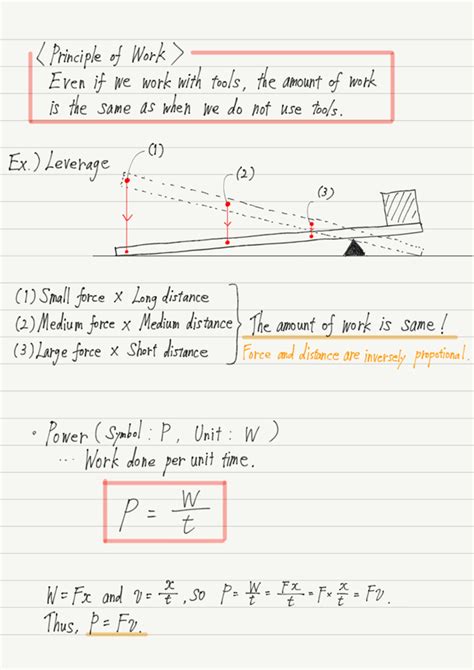 〈Principle of Work〉
Even if we work with tools, the amount of work
is the same as when we do not use tools.
Ex.) Leverage
(1)
(2)
(3)
(1) Small force × Long distance
(2) Medium force × Medium distance
(3) Large force × Short distance
The amount of work is same!
Force and distance are inversely propotional.
・Power (Symbol : P, Unit : W)
… Work done per unit time.
P = W/t
W = Fx and v = x/t, so P = W/t = Fx/t = F × x/t = Fv.
Thus, P = Fv.